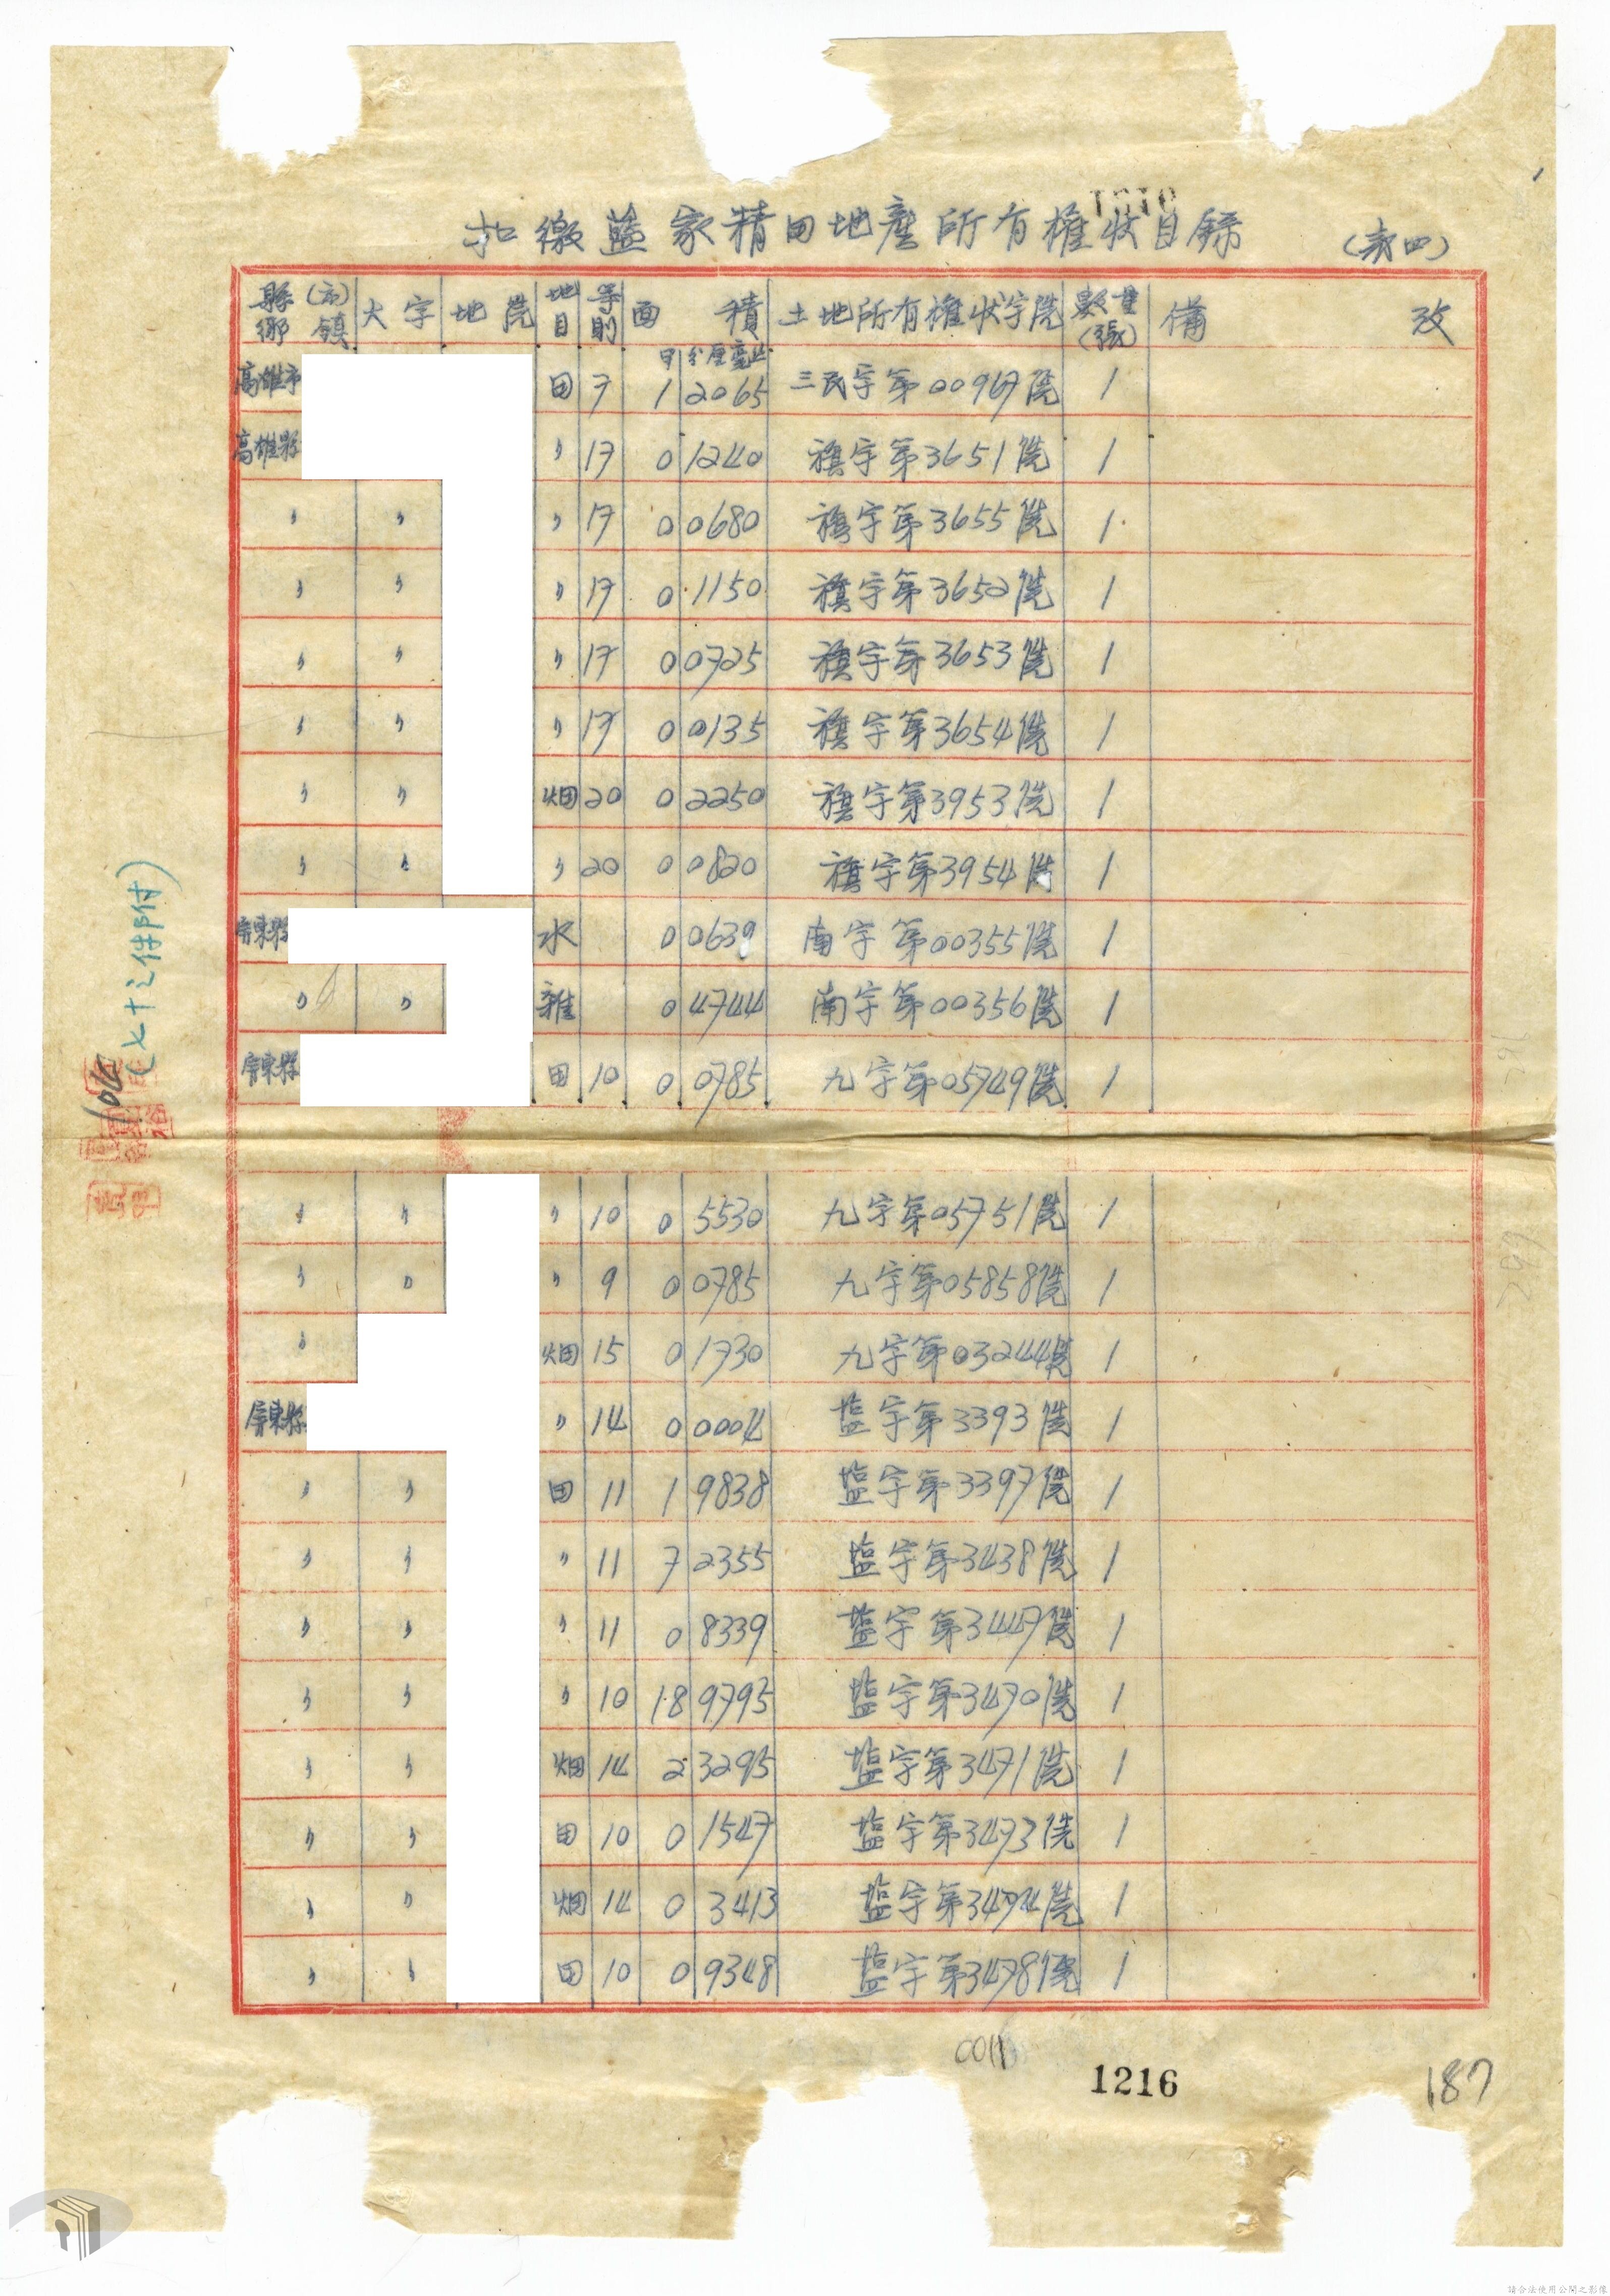 扣繳藍家精田地產所有權狀目錄 (表四)
縣(市)鄉鎮 大字 地號 地目 等則 面積 土地所有權狀字號 數量(張) 備攷
甲 分厘毫糸
高雄市 田 7 1 2065 三民字第00967號 1
高雄縣 〃 17 0 1240 旗字第3651號 1
〃 〃 〃 17 0 0680 旗字第3655號 1
〃 〃 〃 17 0 1150 旗字第3652號 1
〃 〃 〃 17 0 0725 旗字第3653號 1
〃 〃 〃 17 0 0135 旗字第3654號 1
〃 〃 畑 20 0 2250 旗字第3953號 1
〃 〃 〃 20 0 0820 旗字第3954號 1
屏東縣 水 0 0639 南字第00355號 1
〃 〃 雜 0 4744 南字第00356號 1
屏東縣 田 10 0 0785 九字第05749號 1
〃 〃 〃 10 0 5530 九字第05751號 1
〃 〃 〃 9 0 0785 九字第05858號 1
〃 畑 15 0 1730 九字第03244號 1
屏東縣 〃 14 0 0004 塩字第3393號 1
〃 〃 田 11 1 9838 塩字第3397號 1
〃 〃 〃 11 7 2355 塩字第3438號 1
〃 〃 〃 11 0 8339 塩字第3447號 1
〃 〃 〃 10 18 9795 塩字第3470號 1
〃 〃 畑 14 2 3295 塩字第3471號 1
〃 〃 田 10 0 1547 塩字第3473號 1
〃 〃 畑 14 0 3413 塩字第3474號 1
〃 〃 田 10 0 9348 塩字第3478號 1
(七十之件附)
104
0011
1216
187
299
請合法使用公開之影像